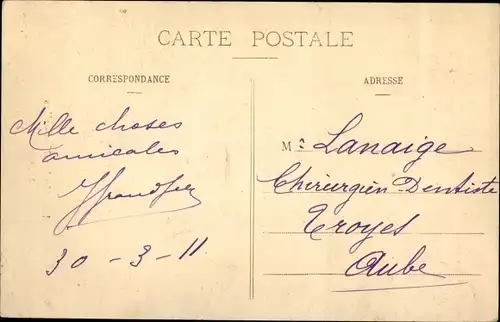 CARTE POSTALE
CORRESPONDANCE
Mille choses
amicales
30 - 3 - 11
ADRESSE
M. Lanaige
Chirurgien Dentiste
Troyes
Aube